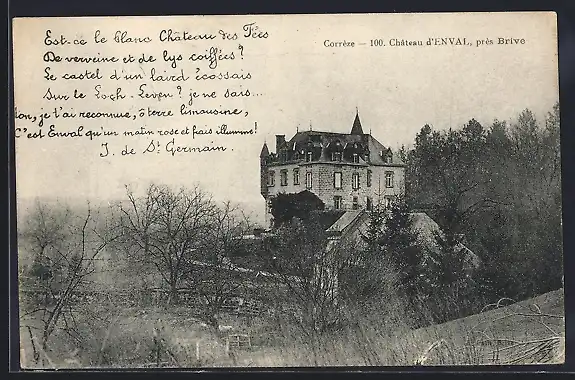 Est-ce le blanc Château des Fées
De verveine et de lys coiffés ?
Le castel d'un laird écossais
Sur le Loch-Leven ? je ne sais...
on, je t'ai reconnue, ô terre limousine,
C'est Enval qu'un matin rose et frais illumine !
J. de St. Germain.
Corrèze — 100. Château d'ENVAL, près Brive